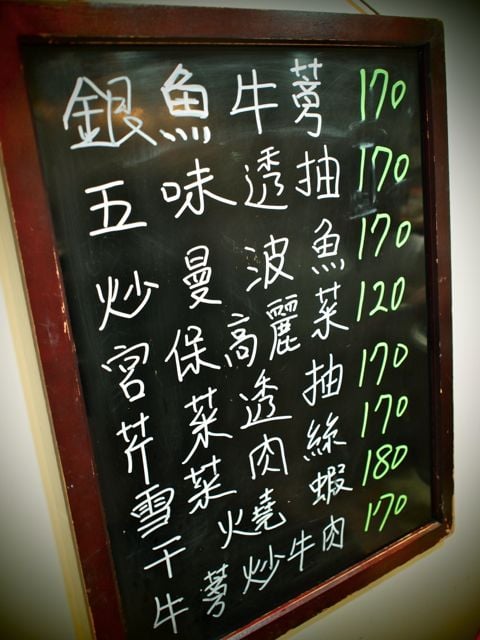 銀魚牛蒡 170
五味透抽 170
炒曼波魚 170
宮保高麗菜 120
芹菜透抽 170
雪菜肉絲 170
干火燒蝦 180
牛蒡炒牛肉 170